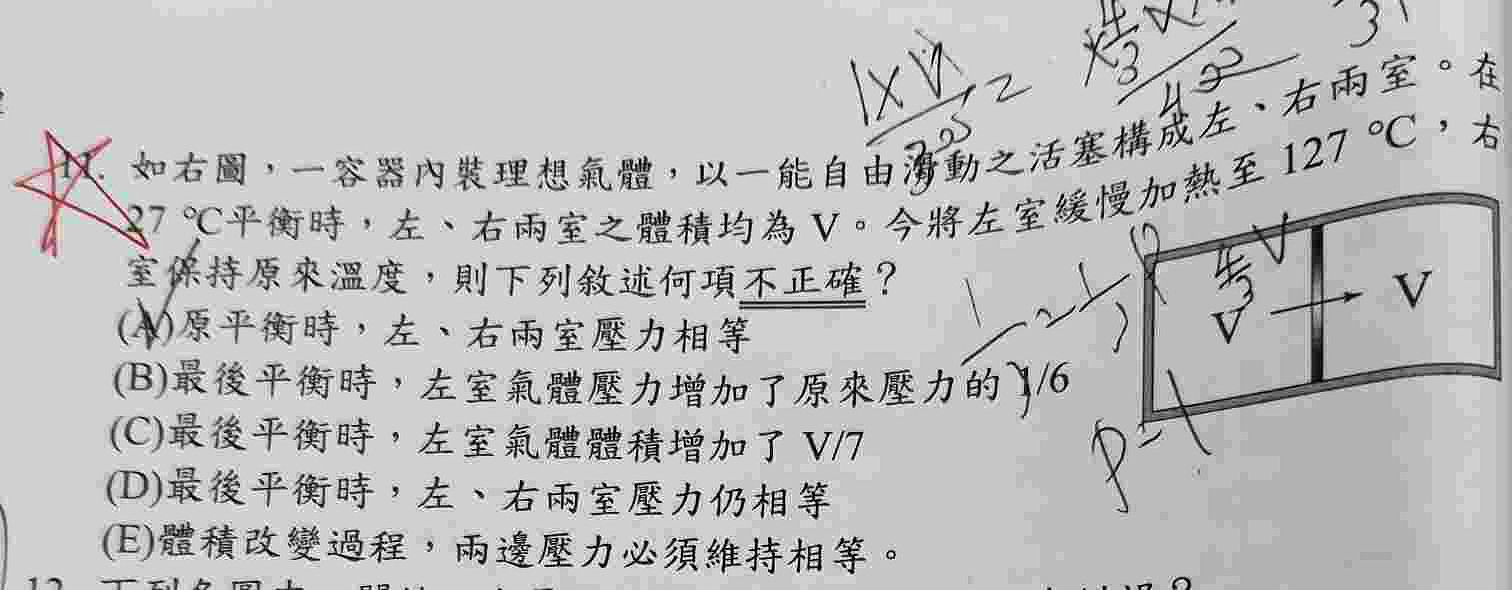 11. 如右圖，一容器內裝理想氣體，以一能自由滑動之活塞構成左、右兩室。在
27 ℃平衡時，左、右兩室之體積均為 V。今將左室緩慢加熱至 127 ℃，右
室保持原來溫度，則下列敘述何項不正確？
(A)原平衡時，左、右兩室壓力相等
(B)最後平衡時，左室氣體壓力增加了原來壓力的1/6
(C)最後平衡時，左室氣體體積增加了 V/7
(D)最後平衡時，左、右兩室壓力仍相等
(E)體積改變過程，兩邊壓力必須維持相等。
V
V
4/3 V